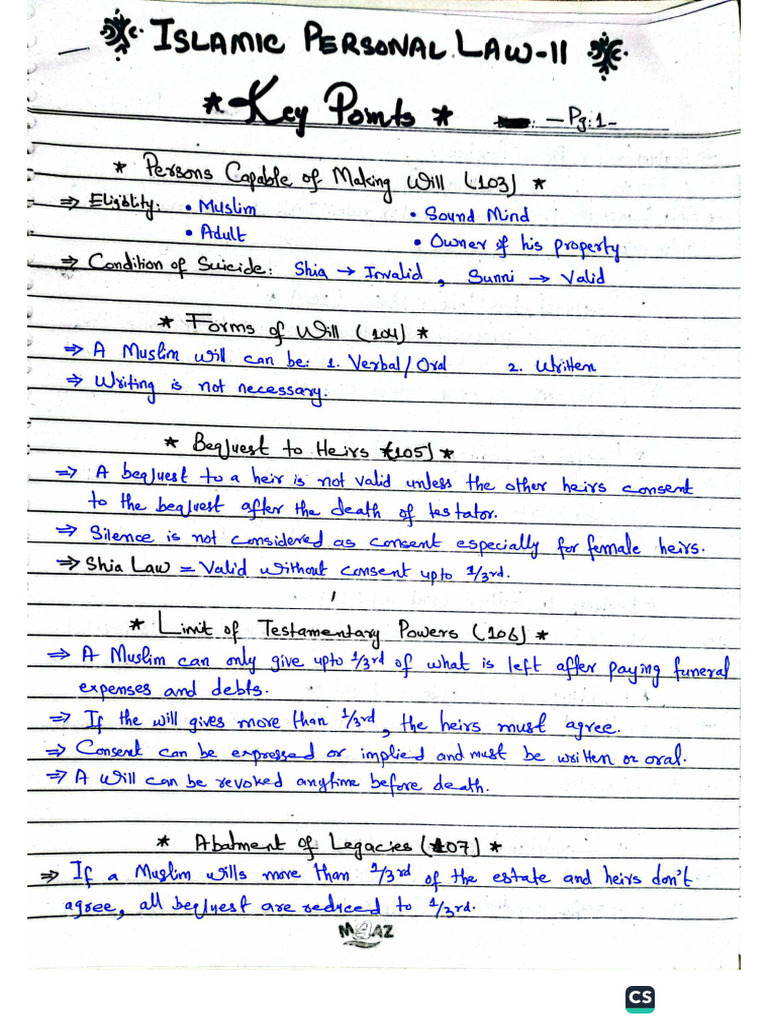 ISLAMIC PERSONAL LAW-II
* Key Points *
-Pg:1-
* Persons Capable of Making Will (103) *
⇒ Eligiblity: • Muslim • Sound Mind
• Adult • Owner of his property
⇒ Condition of Suicide: Shia → Invalid, Sunni → Valid
* Forms of Will (104) *
⇒ A Muslim will can be: 1. Verbal/Oral 2. Written
⇒ Writing is not necessary.
* Beqjuest to Heirs (105) *
⇒ A beqjuest to a heir is not valid unless the other heirs consent
to the beqjuest after the death of testator.
⇒ Silence is not considered as consent especially for female heirs.
⇒ Shia Law = Valid without consent upto 1/3rd.
* Limit of Testamentary Powers (106) *
⇒ A Muslim can only give upto 1/3rd of what is left after paying funeral
expenses and debts.
⇒ If the will gives more than 1/3rd, the heirs must agree.
⇒ Consent can be expressed or implied and must be written or oral.
⇒ A Will can be revoked anytime before death.
* Abatment of Legacies (107) *
⇒ If a Muslim wills more than 1/3rd of the estate and heirs don't
agree, all beqjuest are reduced to 1/3rd.
MAAZ
CS